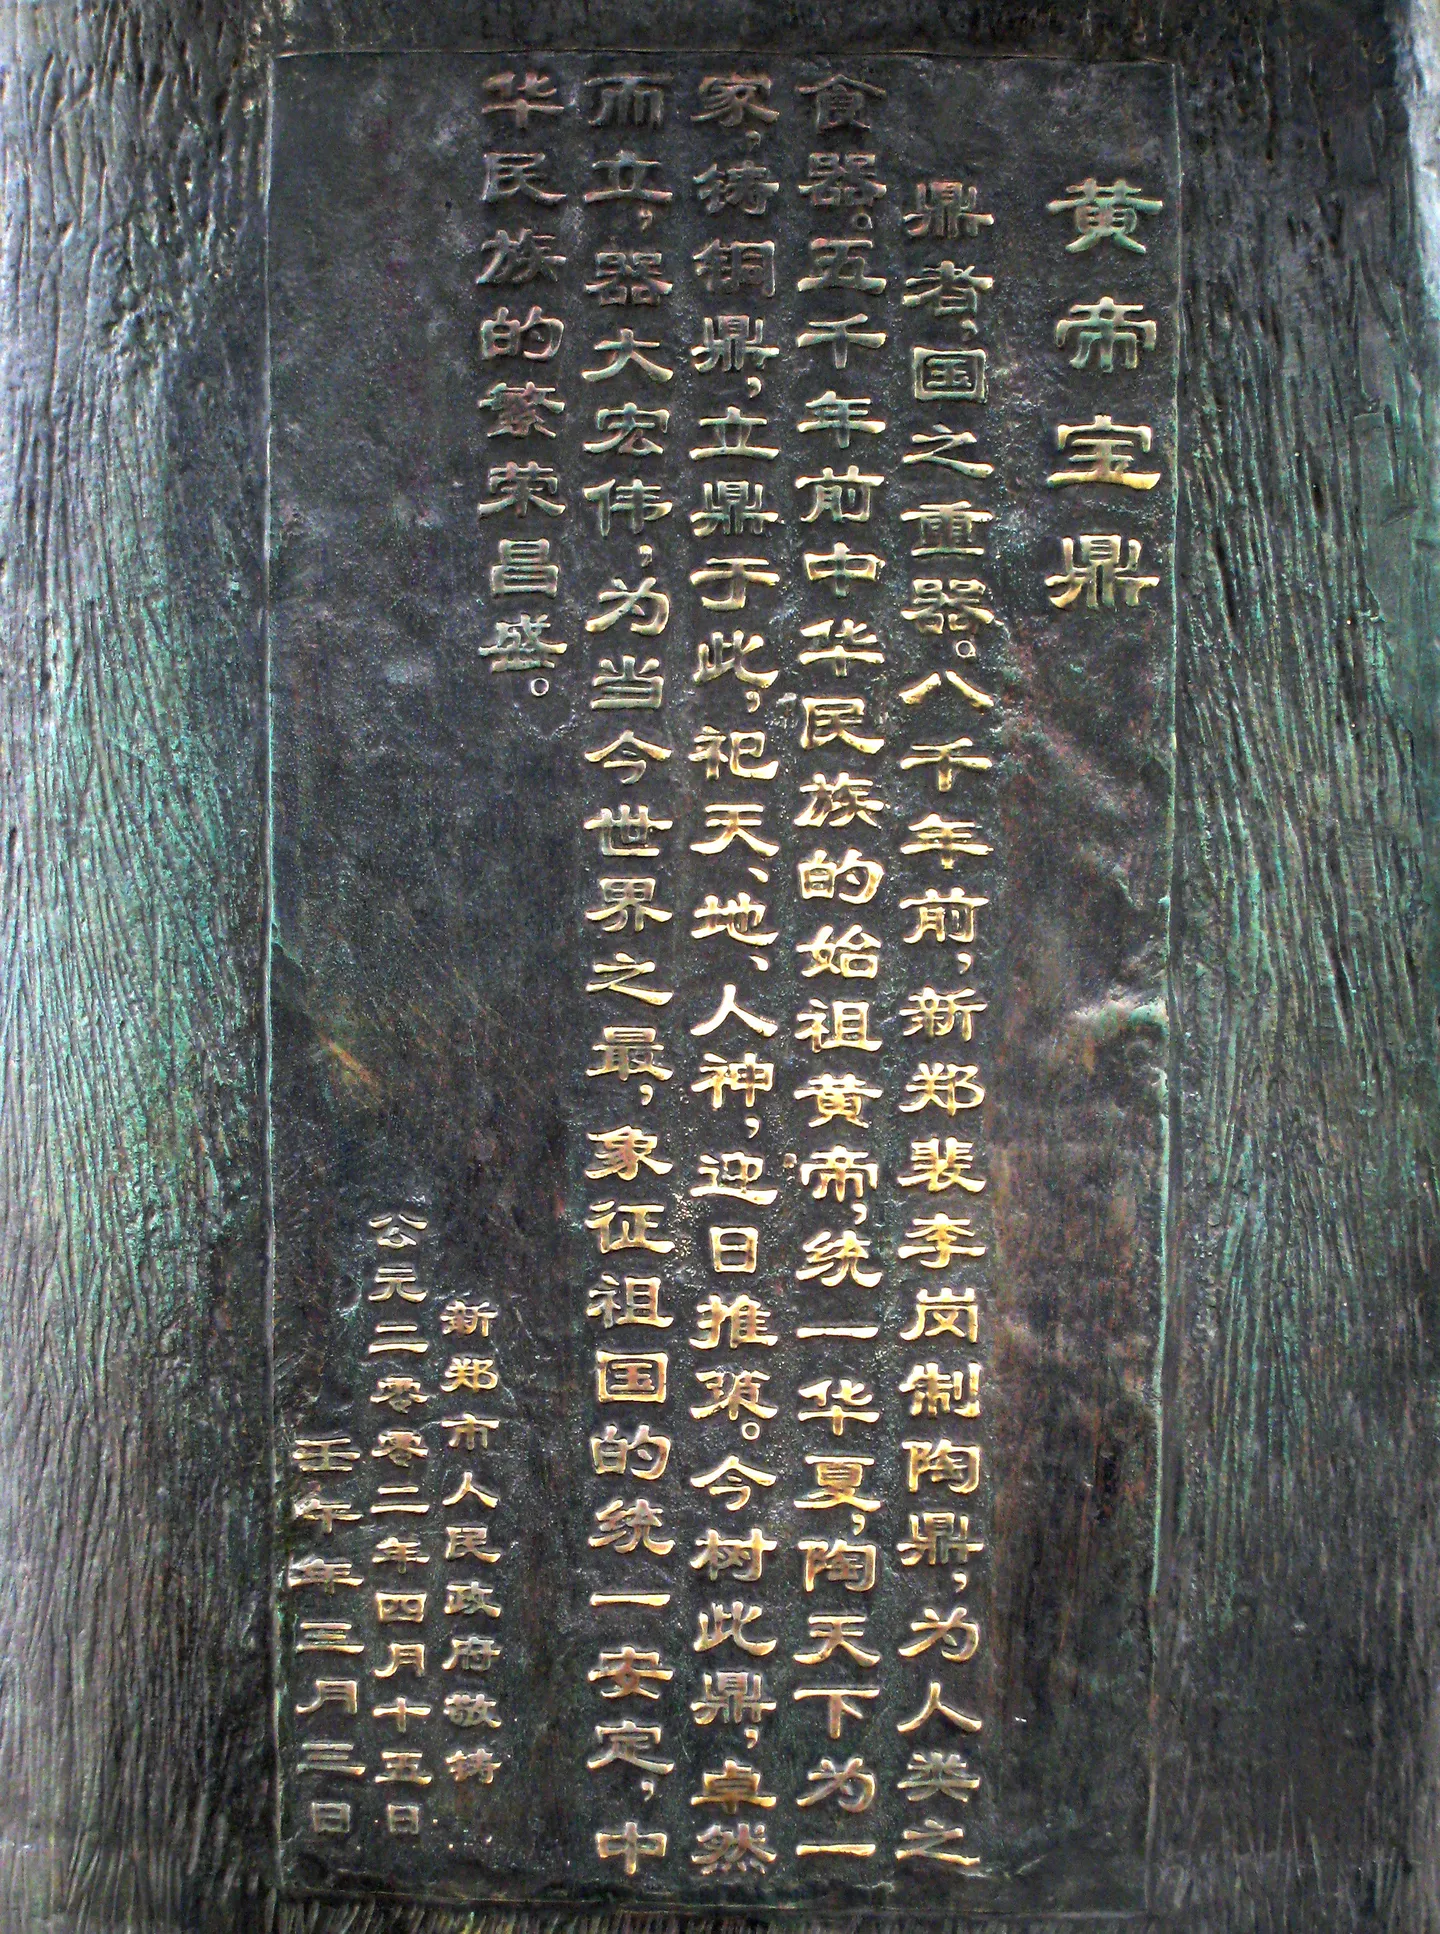 黄帝宝鼎
鼎者，国之重器。八千年前，新郑裴李岗制陶鼎，为人类之
食器。五千年前中华民族的始祖黄帝，统一华夏，陶天下为一
家，铸铜鼎，立鼎于此，祀天、地、人神，迎日推策。今树此鼎，卓然
而立，器大宏伟，为当今世界之最，象征祖国的统一安定，中
华民族的繁荣昌盛。
新郑市人民政府敬铸
公元二零零二年四月十五日
壬午年三月三日